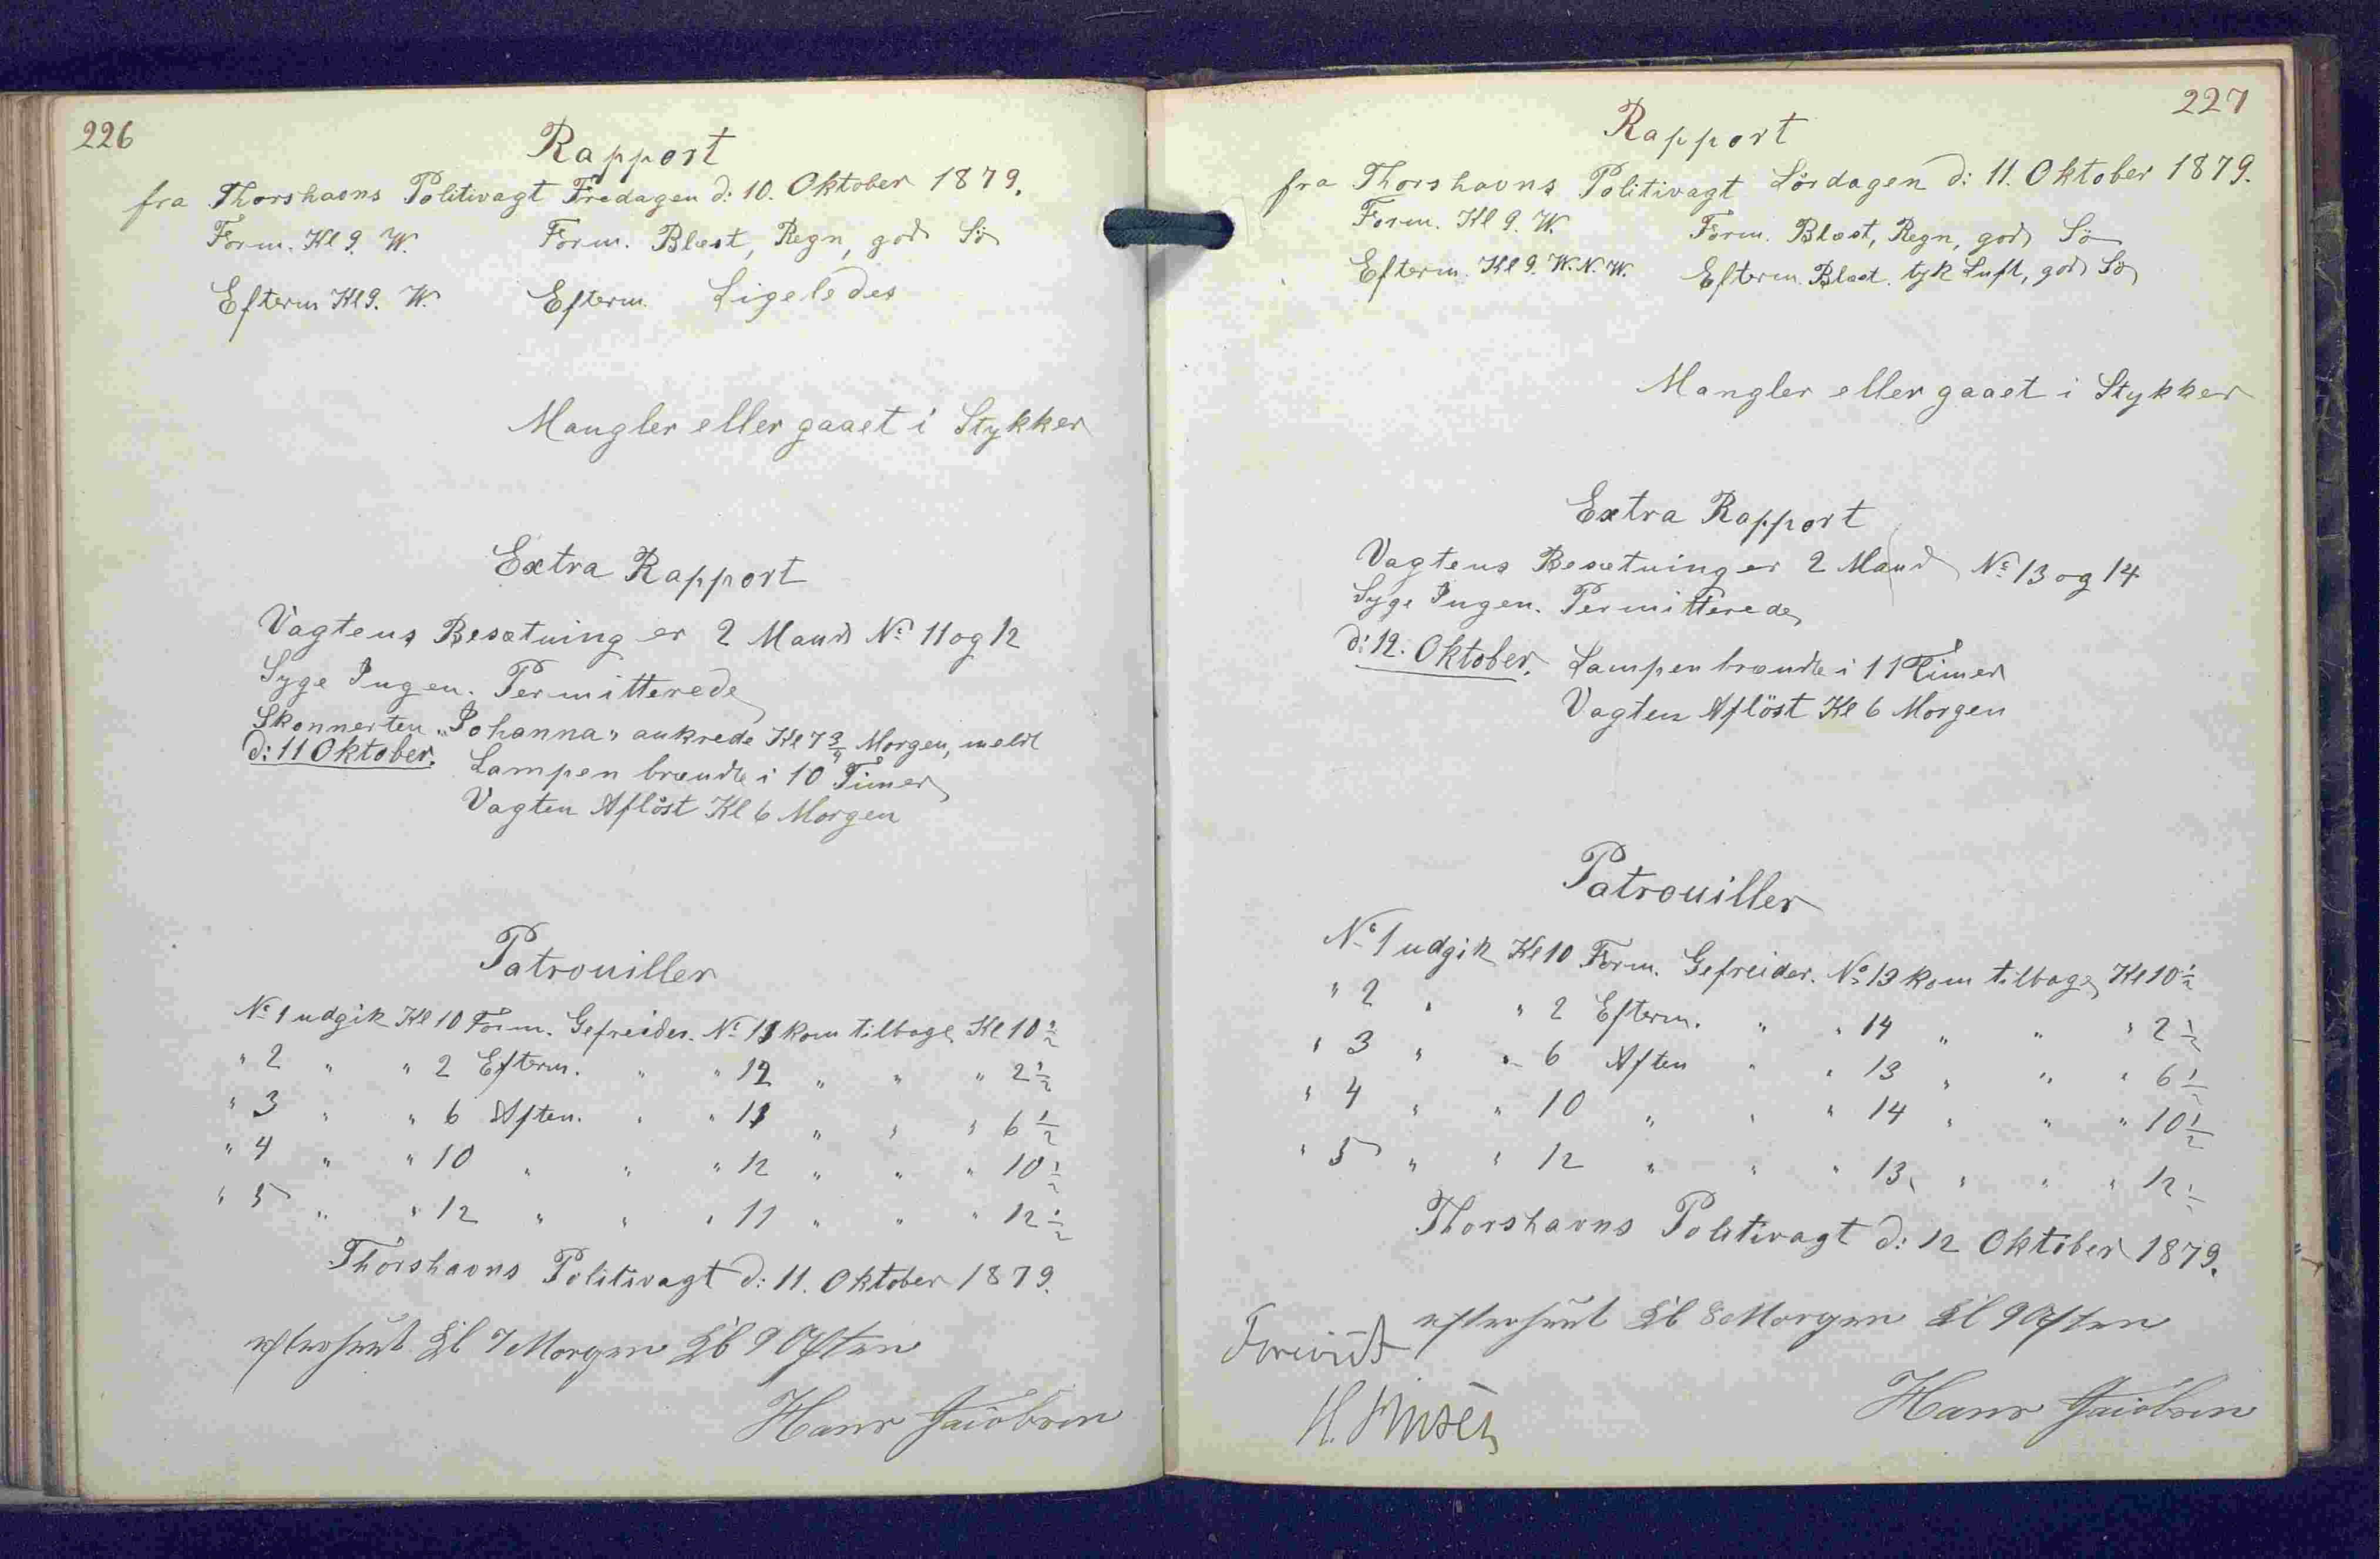 226
Rapport
fra Thorshavns Politivagt Fredagen d: 10. Oktober 1879.
Form. Kl 9. W. Form. Blæst, Regn, god Sö
Efterm Kl 9. W. Efterm. Ligeledes
Mangler eller gaaet i Stykker
Extra Rapport
Vagtens Besætning er 2 Mand No 11 og 12
Syge Ingen. Permitterede
Skonnerten „Johanna" ankrede Kl 7 3/4 Morgen, meldt
d: 11 Oktober. Lampen brændte i 10 Timer
Vagten Aflöst Kl 6 Morgen
Patrouiller
No 1 udgik Kl 10 Form. Gefreider. No 11 kom tilbage Kl 10 1/2
" 2 " " 2 Efterm. " " 12 " " " 2 1/2
" 3 " " 6 Aften. " " 11 " " " 6 1/2
" 4 " " 10 " " " 12 " " " 10 1/2
" 5 " " 12 " " " 11 " " " 12 1/2
Thorshavns Politivagt d: 11. Oktober 1879.
efterseet Kl 7 Morgen Kl 9 Aften
Hans Jacobsen
227
Rapport
fra Thorshavns Politivagt Lördagen d: 11. Oktober 1879.
Form. Kl 9. W. Form. Blæst, Regn, god Sö
Efterm. Kl 9. W.N.W. Efterm. Blæst. tyk Luft, god Sö
Mangler eller gaaet i Stykker
Extra Rapport
Vagtens Besætning er 2 Mand No 13 og 14
Syge Ingen. Permitterede
d: 12. Oktober. Lampen brændte i 11 Timer
Vagten Aflöst Kl 6 Morgen
Patrouiller
No 1 udgik Kl 10 Form. Gefreider. No 13 kom tilbage Kl 10 1/2
" 2 " " 2 Efterm. " " 14 " " " 2 1/2
" 3 " " 6 Aften " " 13 " " " 6 1/2
" 4 " " 10 " " " 14 " " " 10 1/2
" 5 " " 12 " " " 13 " " " 12 1/2
Thorshavns Politivagt d: 12 Oktober 1879.
efterseet Kl 8 Morgen Kl 9 Aften
Forevist
Hans Jacobsen
H.